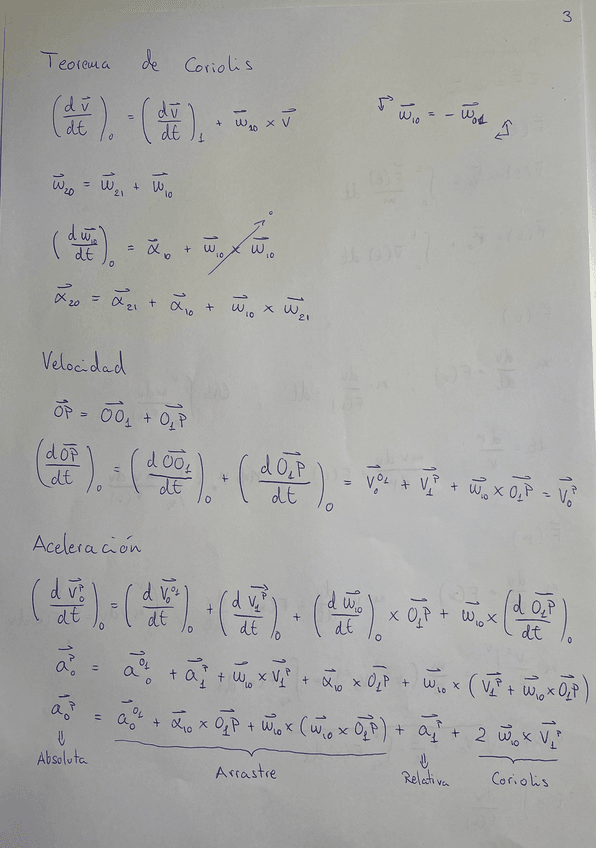 3
Teorema de Coriolis
(d v⃗/dt)₀ = (d v⃗/dt)₁ + w⃗₁₀ × v⃗
w⃗₁₀ = - w⃗₀₁
w⃗₂₀ = w⃗₂₁ + w⃗₁₀
(d w⃗₁₀/dt)₀ = α⃗₁₀ + w⃗₁₀ × w⃗₁₀ ⁰
α⃗₂₀ = α⃗₂₁ + α⃗₁₀ + w⃗₁₀ × w⃗₂₁
Velocidad
OP⃗ = OO₁⃗ + O₁P⃗
(d OP⃗/dt)₀ = (d OO₁⃗/dt)₀ + (d O₁P⃗/dt)₀ = v⃗₀^O₁ + v⃗₁^P + w⃗₁₀ × O₁P⃗ = v⃗₀^P
Aceleración
(d v⃗₀^P/dt)₀ = (d v⃗₀^O₁/dt)₀ + (d v⃗₁^P/dt)₀ + (d w⃗₁₀/dt)₀ × O₁P⃗ + w⃗₁₀ × (d O₁P⃗/dt)₀
a⃗₀^P = a⃗₀^O₁ + a⃗₁^P + w⃗₁₀ × v⃗₁^P + α⃗₁₀ × O₁P⃗ + w⃗₁₀ × (v⃗₁^P + w⃗₁₀ × O₁P⃗)
a⃗₀^P = a⃗₀^O₁ + α⃗₁₀ × O₁P⃗ + w⃗₁₀ × (w⃗₁₀ × O₁P⃗) + a⃗₁^P + 2 w⃗₁₀ × v⃗₁^P
⇓ ⇓
Absoluta Arrastre Relativa Coriolis